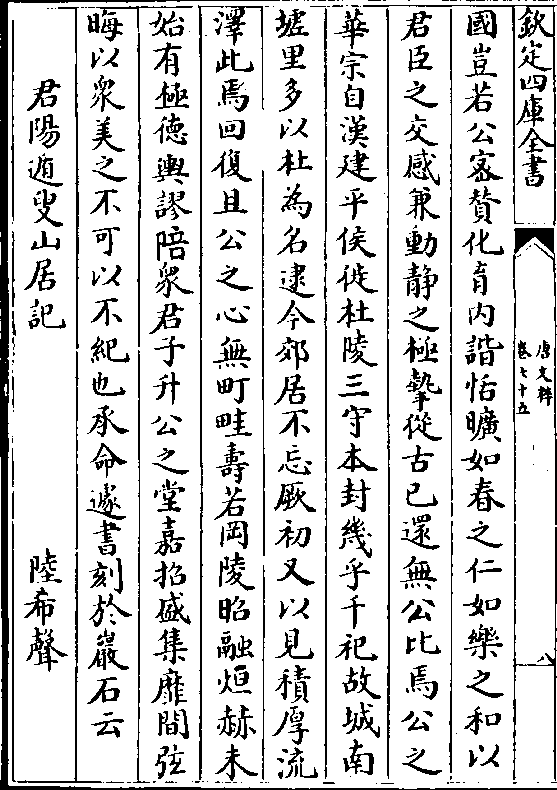 欽定四庫全書
唐文粹
卷七十五
八
國豈若公密贊化育内諧恬曠如春之仁如樂之和以
君臣之交感兼動静之極摯從古已還無公比焉公之
華宗自漢建平侯徙杜陵三守本封幾乎千祀故城南
墟里多以杜為名逮今郊居不忘厥初又以見積厚流
澤此焉回復且公之心無町畦壽若岡陵昭融烜赫未
始有極德輿謬陪衆君子升公之堂嘉招盛集靡間弦
晦以衆美之不可以不紀也承命遽書刻於巖石云
君陽遁叟山居記 陸希聲